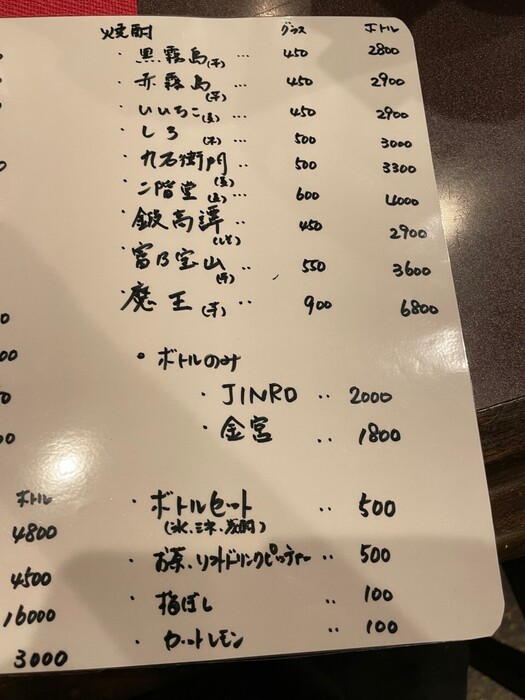 焼酎 グラス ボトル
・黒霧島(芋) … 450 2800
・赤霧島(芋) … 450 2900
・いいちこ(麦) … 450 2900
・しろ(米) … 500 3000
・九右衛門(麦) … 500 3300
・二階堂(麦) … 600 4000
・鍛高譚(しそ) .. 450 2900
・富乃宝山(芋) .. 550 3600
・魔王(芋) .. 900 6800
• ボトルのみ
・JINRO .. 2000
・金宮 .. 1800
・ボトルセット .. 500
(氷、ミネ、炭酸)
・お茶、ソフトドリンクピッチャー .. 500
・梅ぼし .. 100
・カットレモン .. 100
ボトル
4800
4500
16000
3000